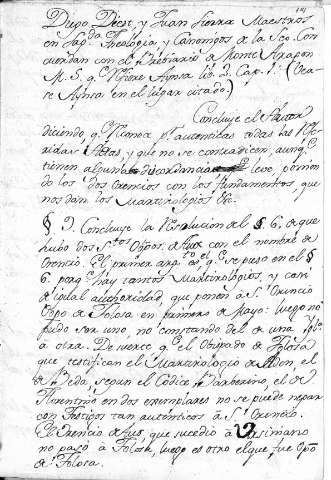 Diego Diest, y Juan Sierra Maestros
en Sag.da Theologia, y Canonigos de la Seo. Con
cuerdan con el Breviario de Monte Aragon
M. S. q. refiere Aynsa lib. 2. Cap. 1. (Vea
se Aynsa en el lugar citado.)
Concluye el Autor
diciendo, q. tiene p.r autenticas todas las
Actas, y que no se contradicen, aunq.
tienen alguna discordancia leve, ponien
do los dos Orencios con los fundamentos, que
nos dan los Martirologios &c.
§. 9. Concluye la Resolucion del §. 6. de que
hubo dos S.tos Obpos. de Aux con el nombre de
Orencio. El primer arg.to es el q. se puso en el §.
6. porq. hay tantos Martirologios, y casi
de igual authoridad, que ponen a S. Orencio
Obpo de Tolosa en primero de Mayo: luego no
pudo ser uno, no constando del de una
a otra. De suerte q. el Obispado de Tolosa
que testifican el Martirologio de Adon, el
de Beda, segun el Codice Barberino, el de
Florentino en dos exemplares no se puede negar
con testigos tan autenticos a S. Orencio.
El Orencio de Aux, que sucedió a Ursiniano
no pasó a Tolosa, luego es otro el que fue Obpo
de Tolosa.